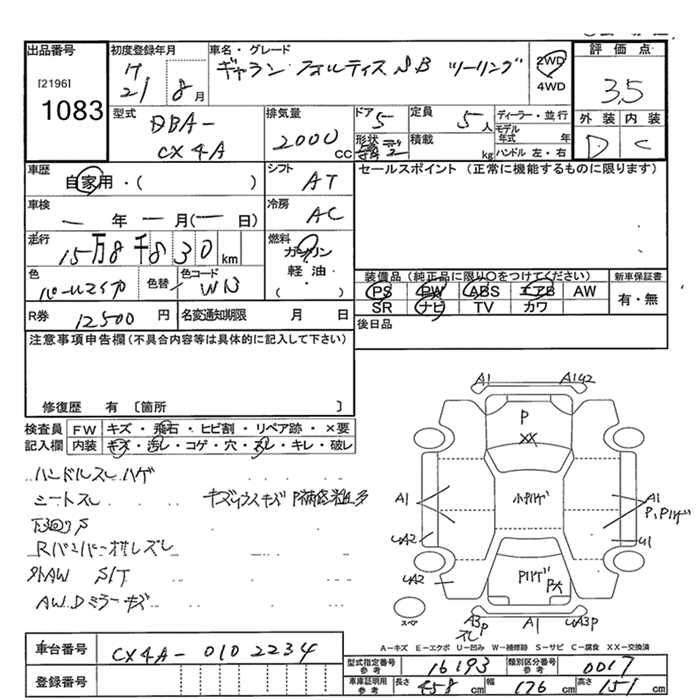 出品番号
[2196]
1083
初度登録年月
H
21 8月
車名・グレード
ギャラン フォルティス SB ツーリング
2WD
4WD
評価点
3.5
外装 内装
D C
型式
DBA-
CX4A
排気量
2000 CC
ドア 5
形状
2
定員 5人
積載 kg
ディーラー・並行
モデル年式 年
ハンドル 左・右
車歴
自家用・( )
シフト AT
セールスポイント (正常に機能するものに限ります)
車検
― 年 ― 月(― 日)
冷房 AC
走行
15万8千830 km
燃料
ガソリン
軽油・
( )
色
パールマイカ
色替
色コード
WNB
装備品(純正品に限り○をつけてください)
PS PW ABS エアB AW
SR ナビ TV カワ
新車保証書
有・無
R券 12500円
名変通知期限 月 日
後日品
注意事項申告欄(不具合内容等は具体的に記入して下さい)
修復歴 有 〔箇所 〕
検査員記入欄
FW キズ・飛石・ヒビ割・リペア跡・×要
内装 キズ・汚れ・コゲ・穴・スレ・キレ・破レ
ハンドルスレ ハゲ
シートスレ
キズ
下廻りS
Rバンパー押レズレ
外AW S/T
AW.Dミラーキズ
A1
A1 U2
P
XX
A1
小Pハゲ
A1
P,Pハゲ
UA2
U1
UA2
Pハゲ
スペア
A3P
スレ
A1
UA3P
A-キズ E-エクボ U-凹み W-補修跡 S-サビ C-腐食 XX-交換済
車台番号 CX4A-0102234
登録番号
型式指定番号参考 16193
類別区分番号参考 0017
車庫証明用参考
長さ 458 cm
幅 176 cm
高さ 151 cm